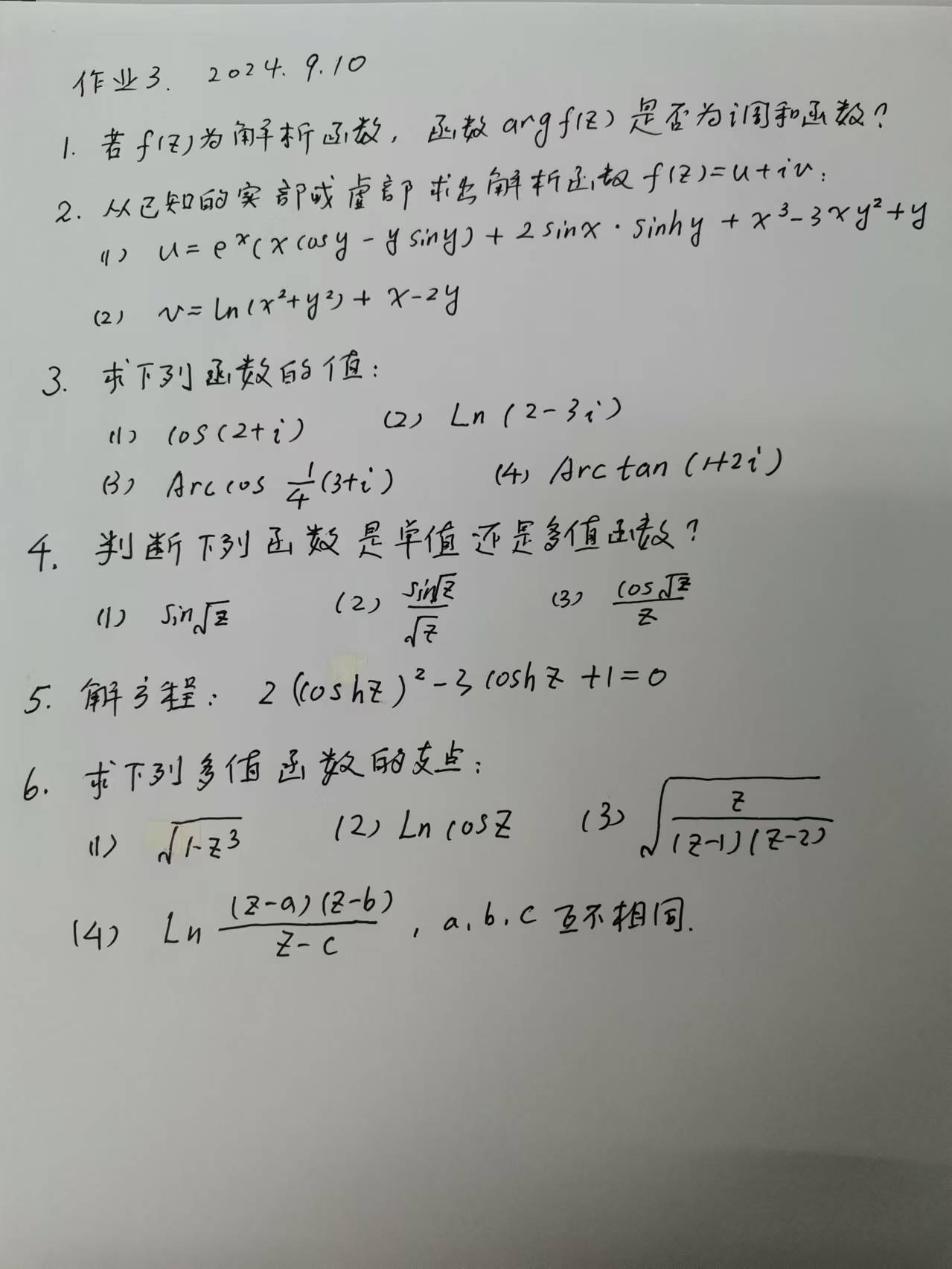 作业3. 2024.9.10
1. 若f(z)为解析函数, 函数 arg f(z) 是否为调和函数?
2. 从已知的实部或虚部求出解析函数 f(z)=u+iv:
(1) u=e^x(x cosy - y siny) + 2 sinx · sinhy + x³-3xy²+y
(2) v=ln(x²+y²)+ x-2y
3. 求下列函数的值:
(1) cos(2+i) (2) Ln(2-3i)
(3) Arccos \frac{1}{4}(3+i) (4) Arctan(1+2i)
4. 判断下列函数是单值还是多值函数?
(1) sin√z (2) \frac{sin√z}{√z} (3) \frac{cos√z}{z}
5. 解方程: 2(coshz)²-3coshz+1=0
6. 求下列多值函数的支点:
(1) \sqrt{1-z³} (2) Ln cosz (3) \sqrt{\frac{z}{(z-1)(z-2)}}
(4) Ln \frac{(z-a)(z-b)}{z-c}, a, b, c 互不相同.